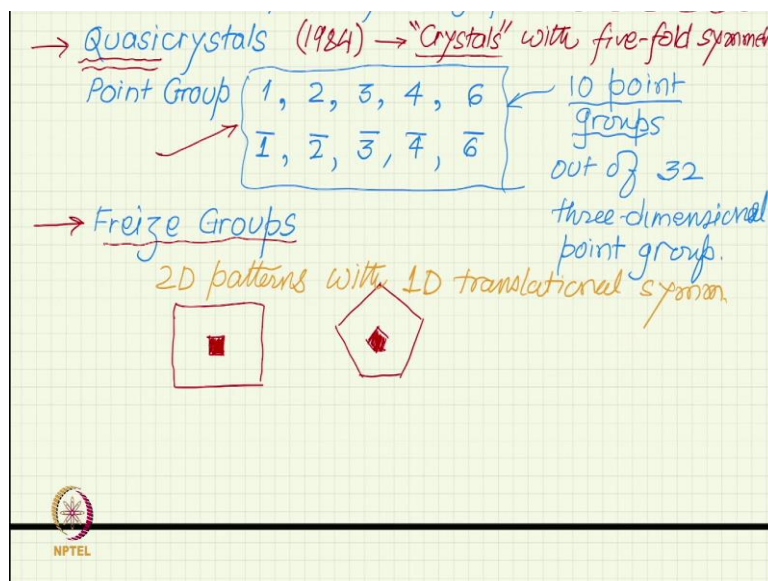 → Quasicrystals (1984) → "Crystals" with five-fold symmet
Point Group 1, 2, 3, 4, 6 ← 10 point
groups
1̅, 2̅, 3̅, 4̅, 6̅
out of 32
three-dimensional
point group.
→ Freize Groups
2D patterns with 1D translational symm.
NPTEL